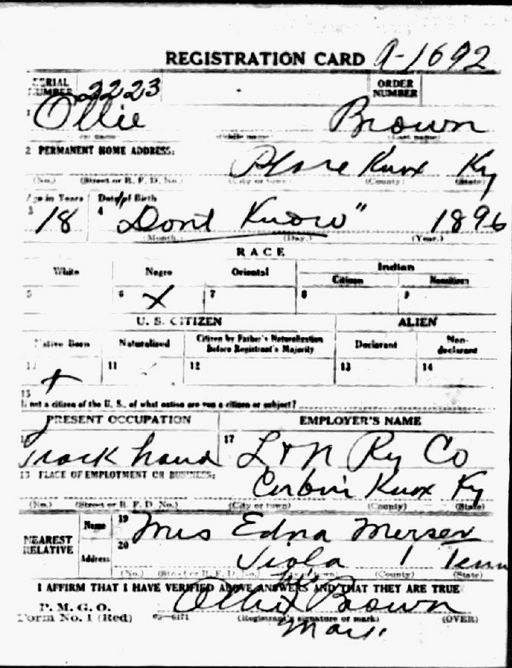 REGISTRATION CARD A-1692
SERIAL NUMBER 2223 ORDER NUMBER
1 Ollie Brown
(Middle name) (Last name)
2 PERMANENT HOME ADDRESS:
Knox Ky
(No.) (Street or R. F. D. No.) (City or town) (County) (State)
Age in Years Date of Birth
3 18 4 "Dont Know" 1896
(Month.) (Day.) (Year.)
RACE
White Negro Oriental Indian
Citizen Noncitizen
5 6 X 7 8 9
U. S. CITIZEN ALIEN
Native Born Naturalized Citizen by Father's Naturalization Before Registrant's Majority Declarant Non-declarant
10 X 11 12 13 14
15
If not a citizen of the U. S., of what nation are you a citizen or subject?
PRESENT OCCUPATION EMPLOYER'S NAME
16 Track hand 17 L & N Ry Co
18 PLACE OF EMPLOYMENT OR BUSINESS:
Corbin Knox Ky
(No.) (Street or R. F. D. No.) (City or town) (County) (State)
NEAREST RELATIVE Name 19 Mrs Edna Merser
Address 20 Viola Tenn
(No.) (Street or R. F. D. No.) (City or town) (County) (State)
I AFFIRM THAT I HAVE VERIFIED ABOVE ANSWERS AND THAT THEY ARE TRUE
P. M. G. O.
Form No. 1 (Red) Ollie Brown
(Registrant's signature or mark) (OVER)